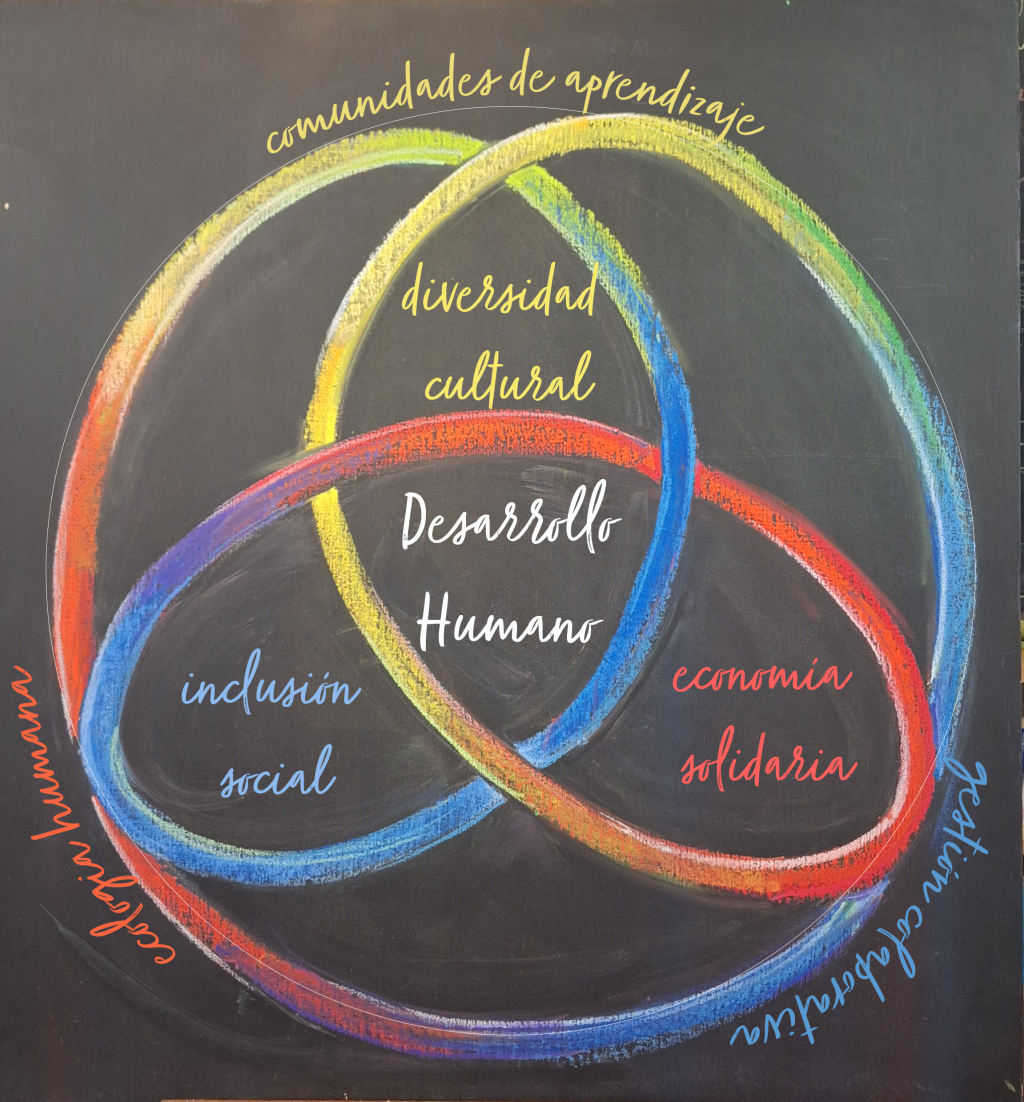 comunidades de aprendizaje
diversidad
cultural
Desarrollo
Humano
inclusión
social
economía
solidaria
ecología humana
gestión colaborativa